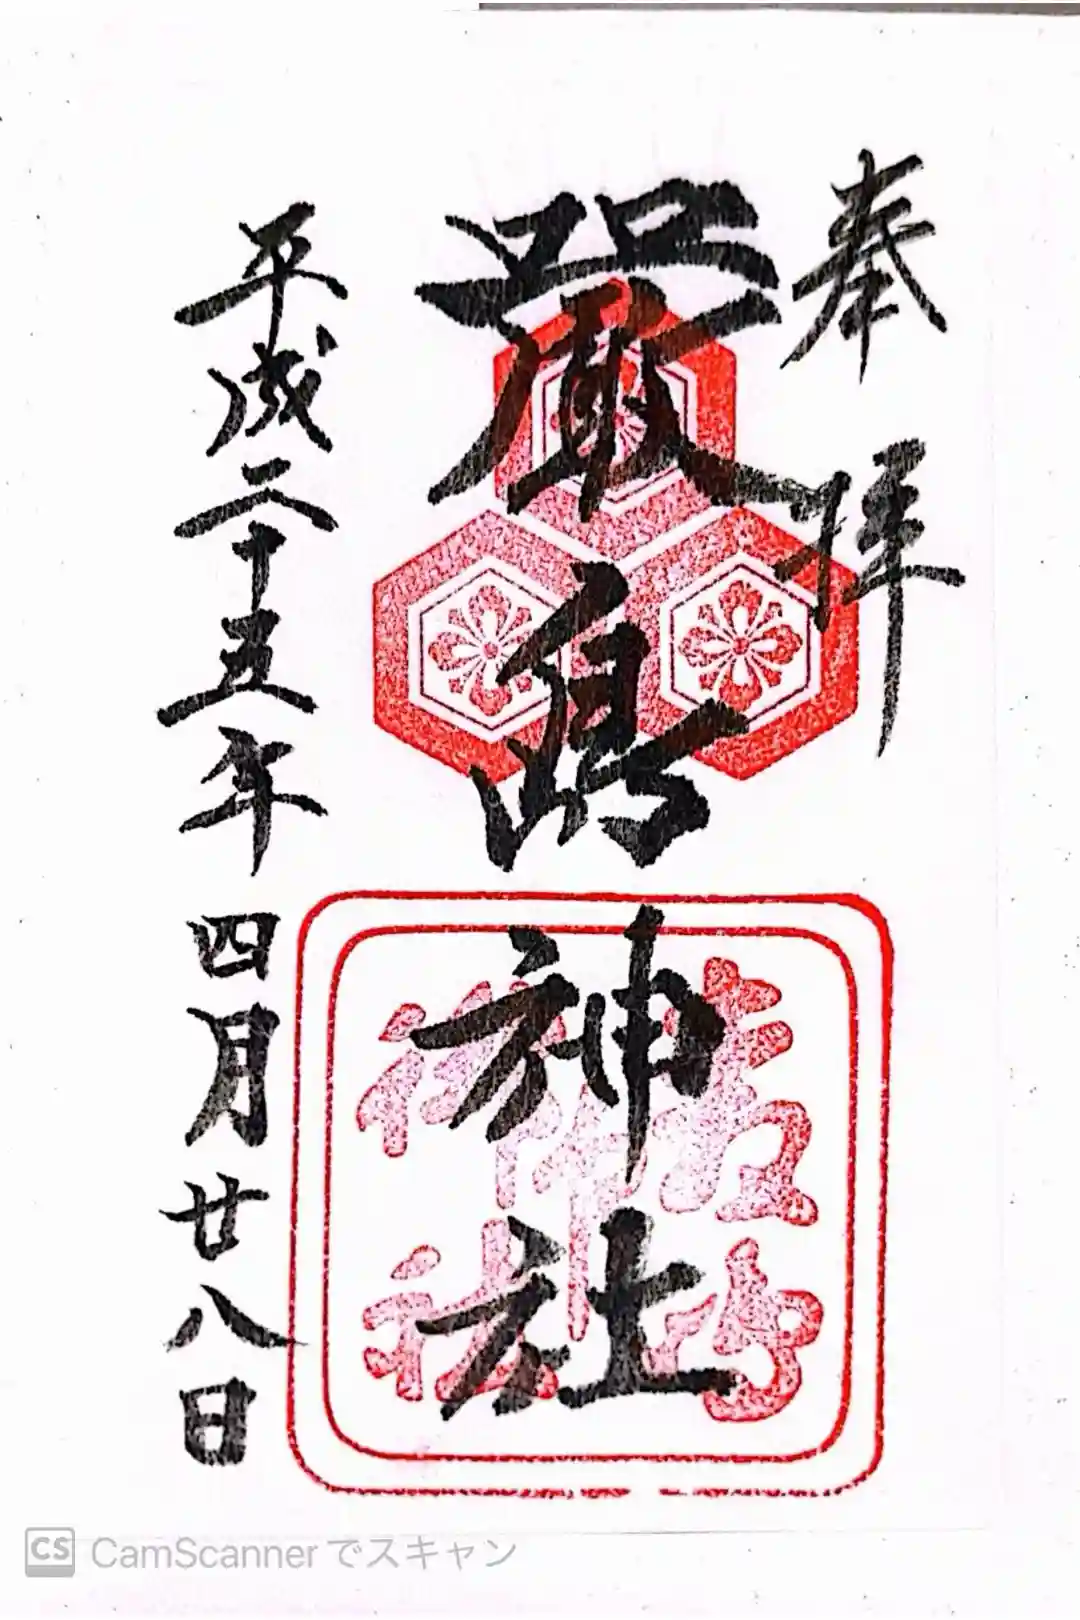 奉拝
嚴島神社
平成二十五年四月廿八日
CS CamScannerでスキャン